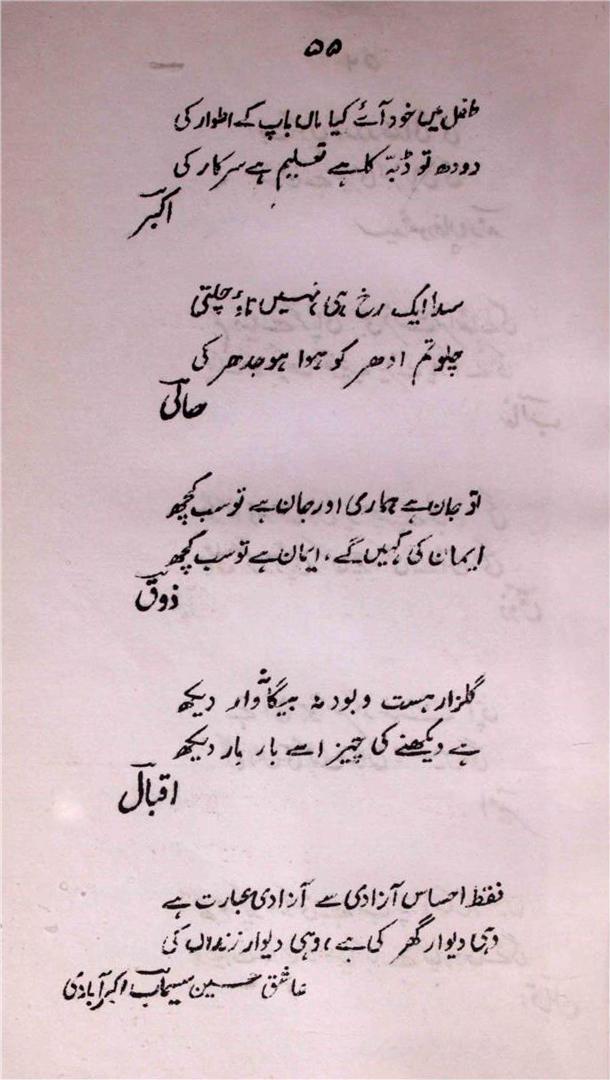 ۵۵
طفل میں خود آئے کیا ماں باپ کے اطوار کی
دودھ تو ڈبّہ کا ہے تعلیم ہے سرکار کی
اکبر
سدا ایک رخ ہی، نہیں ناؤ چلتی
چلو تم ادھر کو ہوا ہو جدھر کی
حالی
تو جان ہے ہماری اور جان ہے تو سب کچھ
ایمان کی کہیں گے، ایمان ہے تو سب کچھ
ذوق
گلزار ہست و بود نہ بیگانہ وار دیکھ
ہے دیکھنے کی چیز اسے بار بار دیکھ
اقبال
فقط احساس آزادی سے آزادی عبارت ہے
وہی دیوار گھر کی ہے، وہی دیوار زنداں کی
عاشق حسین سیماب اکبرآبادی